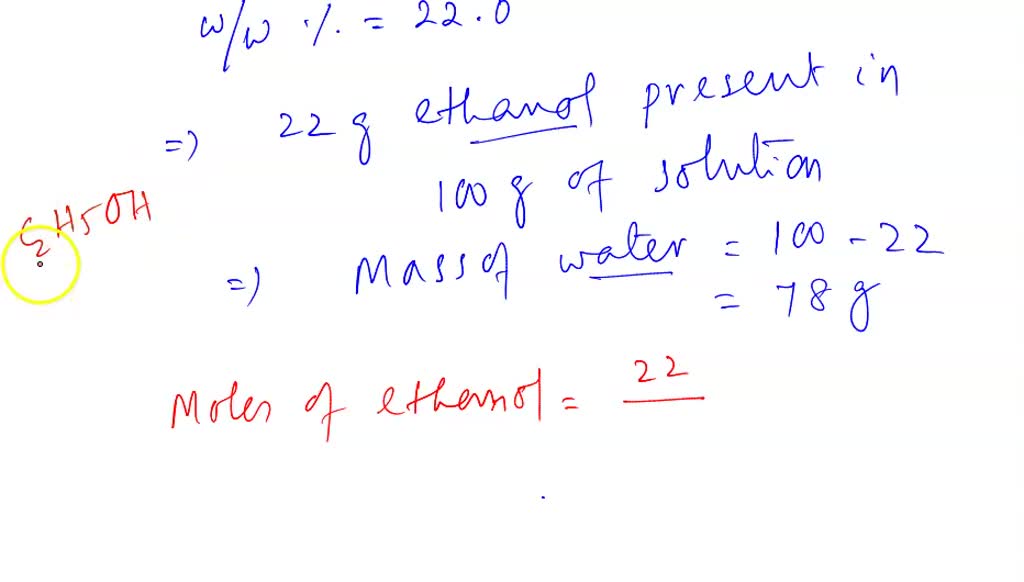 w/w % = 22.0
=) 22 g ethanol present in
100 g of solution
C2H5OH
=) Mass of water = 100 - 22
= 78 g
Moles of ethanol = 22